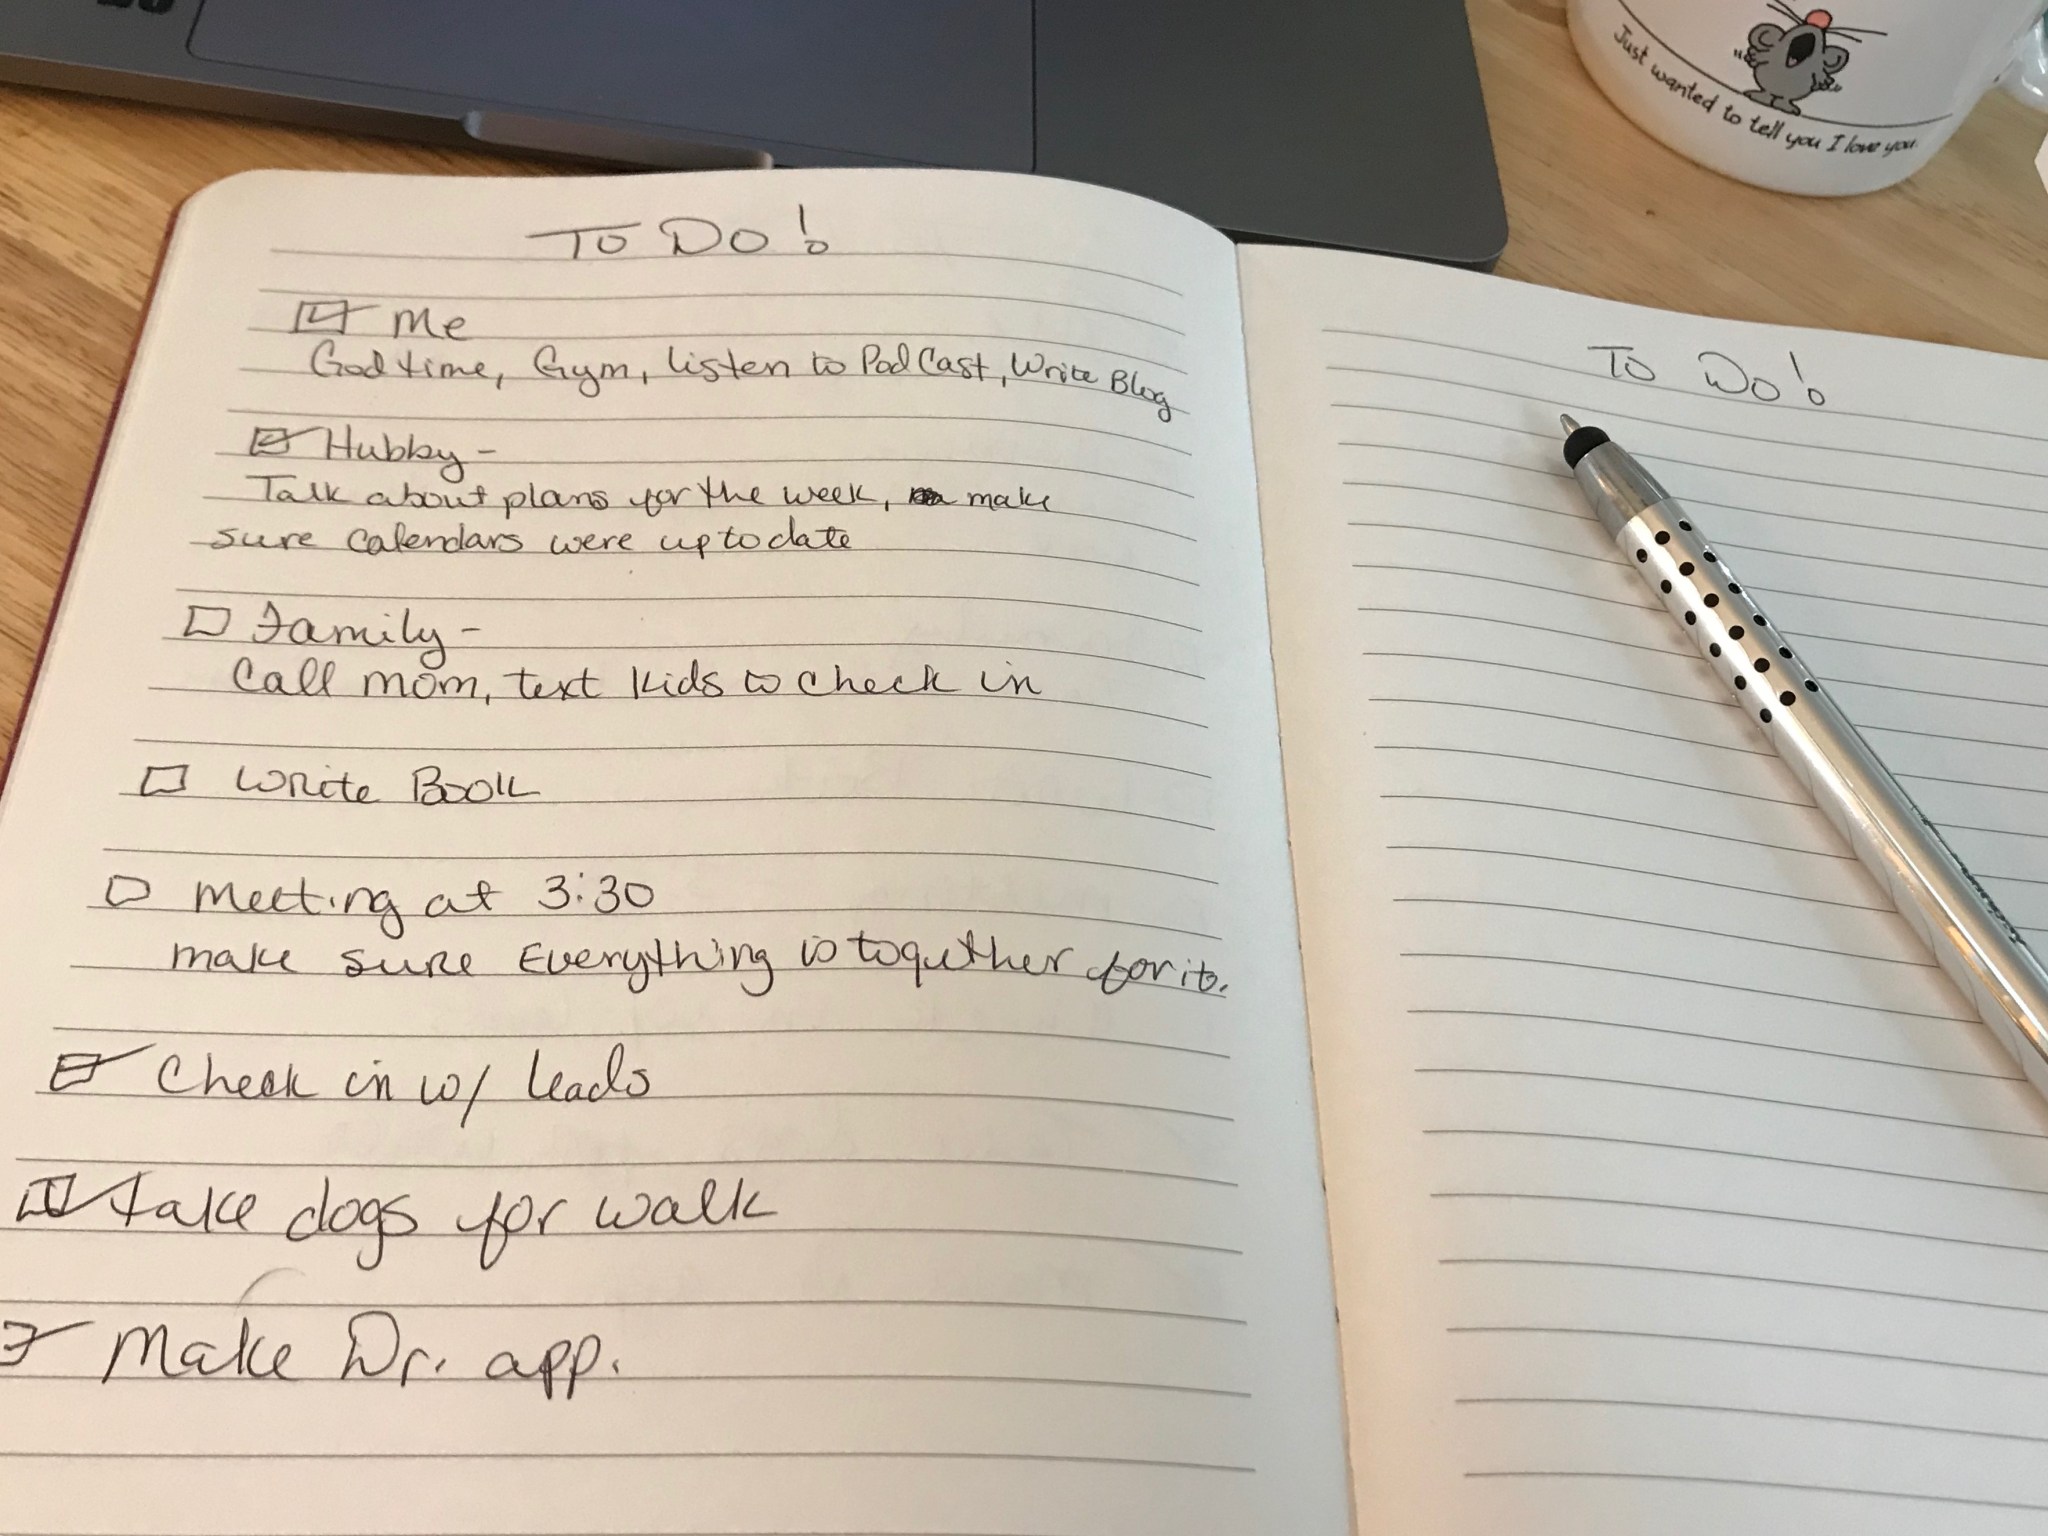 To Do!
Me
God time, Gym, listen to PodCast, Write Blog
Hubby -
Talk about plans for the week, make
sure Calendars were up to date
Family -
Call mom, text kids to check in
Write Book
Meeting at 3:30
make sure Everything is together for it.
Check in w/ leads
take dogs for walk
Make Dr. app.
To Do!
Just wanted to tell you I love you.